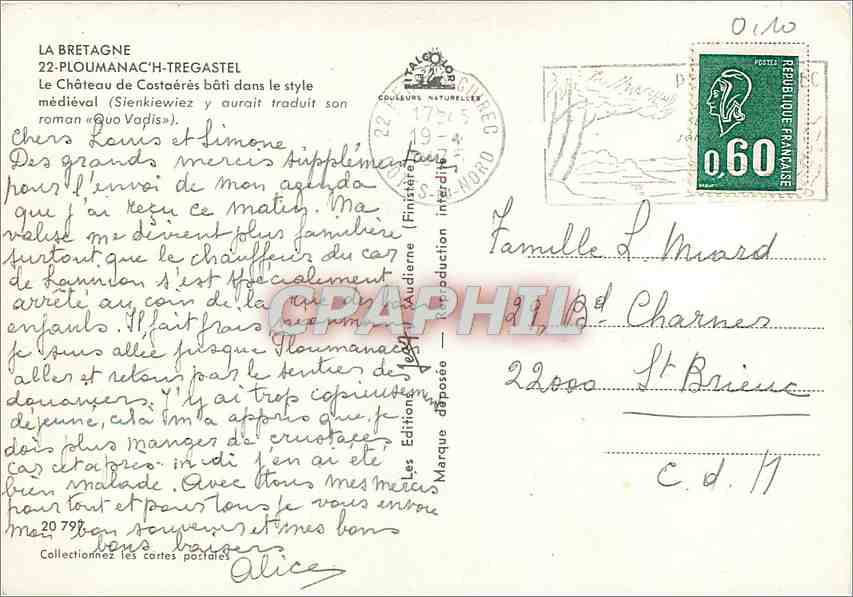 0,10
LA BRETAGNE
22-PLOUMANAC'H-TREGASTEL
Le Château de Costaérès bâti dans le style
médiéval (Sienkiewiez y aurait traduit son
roman «Quo Vadis»).
ITALCOLOR
COULEURS NATURELLES
17-45
19-4
POSTES
RÉPUBLIQUE FRANÇAISE
0,60
Chers Louis et Simone
Des grands mercis supplémentaires
pour l'envoi de mon agenda
que j'ai reçu ce matin. Ma
valise me devient plus familière
surtout que le chauffeur du car
de Lannion s'est spécialement
arrêté au coin de la rue des
enfants. Il fait frais
je suis allée jusque Ploumanach
aller et retour par le sentier des
douaniers. J'y ai trop copieusement
déjeuné, celà m'a appris que je
dois plus manger de crustacés
car cet après-midi j'en ai été
bien malade. Avec tous mes mercis
pour tout et pour tous je vous envoie
mon bon souvenir et mes bons
bons baisers
Alice
20 797
Collectionnez les cartes postales
Les Editions Audierne (Finistère)
Marque déposée — Reproduction interdite
CPARPHIL
Famille L. Miard
29, Bd Charnes
22000 St Brieuc
C.d.N